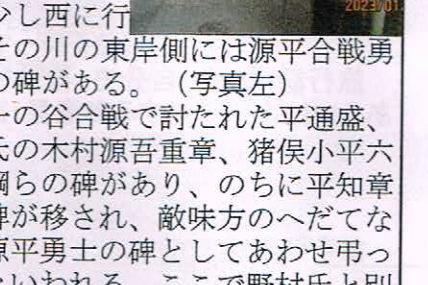 2023/01
少し西に行
その川の東岸側には源平合戦勇
の碑がある。（写真左）
一の谷合戦で討たれた平通盛、
氏の木村源吾重章、猪俣小平六
綱らの碑があり、のちに平知章
碑が移され、敵味方のへだてな
源平勇士の碑としてあわせ弔っ
といわれる。ここで野村氏と別